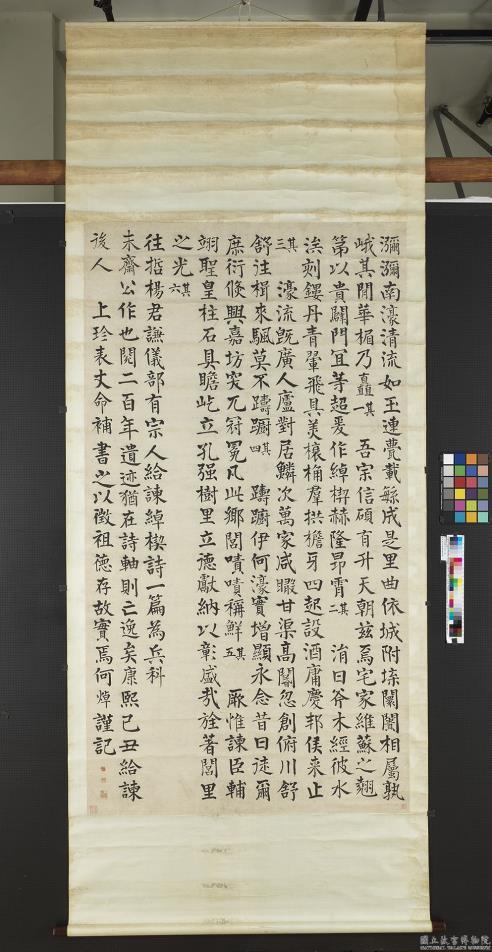 瀰瀰南濠清流如玉連甍載緐成是里曲依城附埭闤闠相屬孰
峨其閈華楣乃矗其一 吾宗信碩育升天朝茲焉宅家維蘇之翹
第以貴闢門宜等超爰作綽楔赫隆昂霄其二 洧日斧木經彼水
涘刻鏤丹青翬飛具美榱桷羣拱檐牙四起設酒庸慶邦侯來止
其三 濠流既廣人廬對居鱗次萬家咸暇甘渠高闥忽創俯川舒
舒注楫來颿莫不躊躕其四 躊躕伊何濠實增顯永念昔日徒爾
庶衍倏興嘉坊突兀冠冕凡此鄉閭嘖嘖稱鮮其五 厥惟諫臣輔
翊聖皇柱石具瞻屹立孔强樹里立德獻納以彰盛哉旌著閭里
之光其六
往哲楊君謙儀部有宗人給諫綽楔詩一篇為兵科
未齋公作也閱二百年遺迹猶在詩軸則亡逸矣康熙己丑給諫
後人 上珍表丈命補書之以徵祖德存故實焉何焯謹記
國立故宮博物院